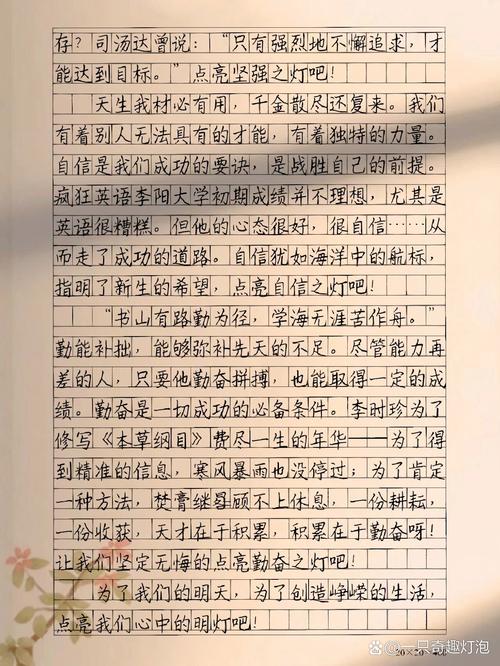 存？司汤达曾说：“只有强烈地不懈追求，才
能达到目标。”点亮坚强之灯吧！
天生我材必有用，千金散尽还复来。我们
有着别人无法具有的才能，有着独特的力量。
自信是我们成功的要诀，是战胜自己的前提。
疯狂英语李阳大学初期成绩并不理想，尤其是
英语很糟糕。但他的心态很好，很自信……从
而走了成功的道路。自信犹如海洋中的航标，
指明了新生的希望，点亮自信之灯吧！
“书山有路勤为径，学海无涯苦作舟。”
勤能补拙，能够弥补先天的不足。尽管能力再
差的人，只要他勤奋拼搏，也能取得一定的成
绩。勤奋是一切成功的必备条件。李时珍为了
修写《本草纲目》费尽一生的年华——为了得
到精准的信息，寒风暴雨也没停过；为了肯定
一种方法，焚膏继晷顾不上休息，一份耕耘，
一份收获，天才在于积累，积累在于勤奋呀！
让我们坚定无悔的点亮勤奋之灯吧！
为了我们的明天，为了创造峥嵘的生活，
点亮我们心中的明灯吧！
20×20=400
一只奇趣灯泡